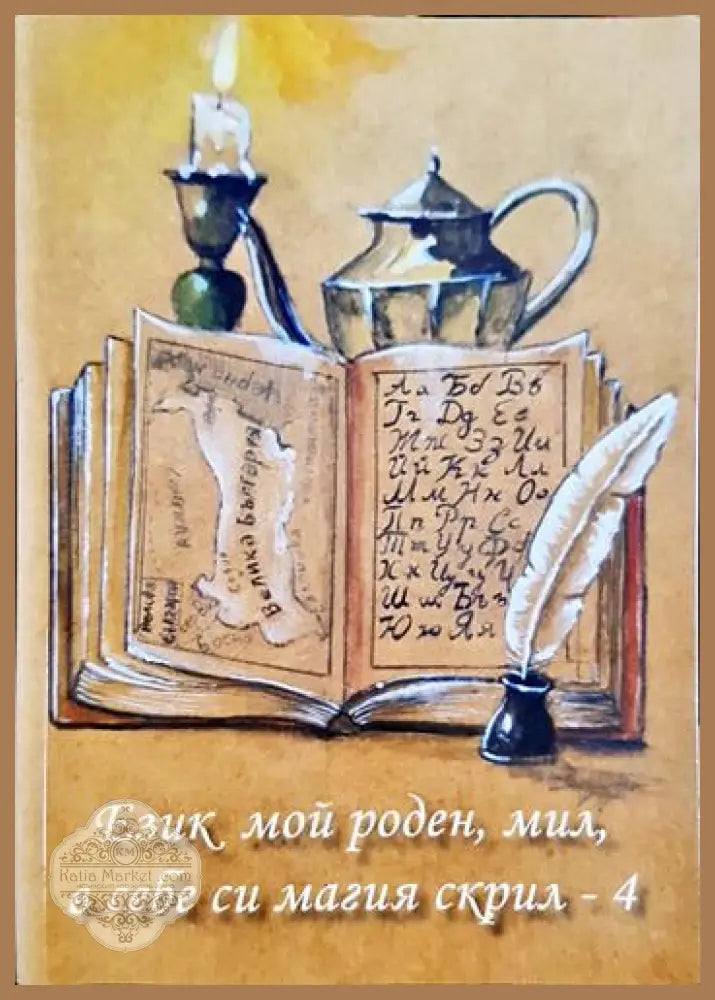 Велика България
София
Аа Бб Вв
Гг Дд Ее
Жж Зз Ии
Йй Кк Лл
Мм Нн Оо
Пп Рр Сс
Тт Уу Фф
Хх Цц Ч
Шш Бъ
Юю Яя
Език мой роден, мил,
в себе си магия скрил - 4
KM
Katia Market .com